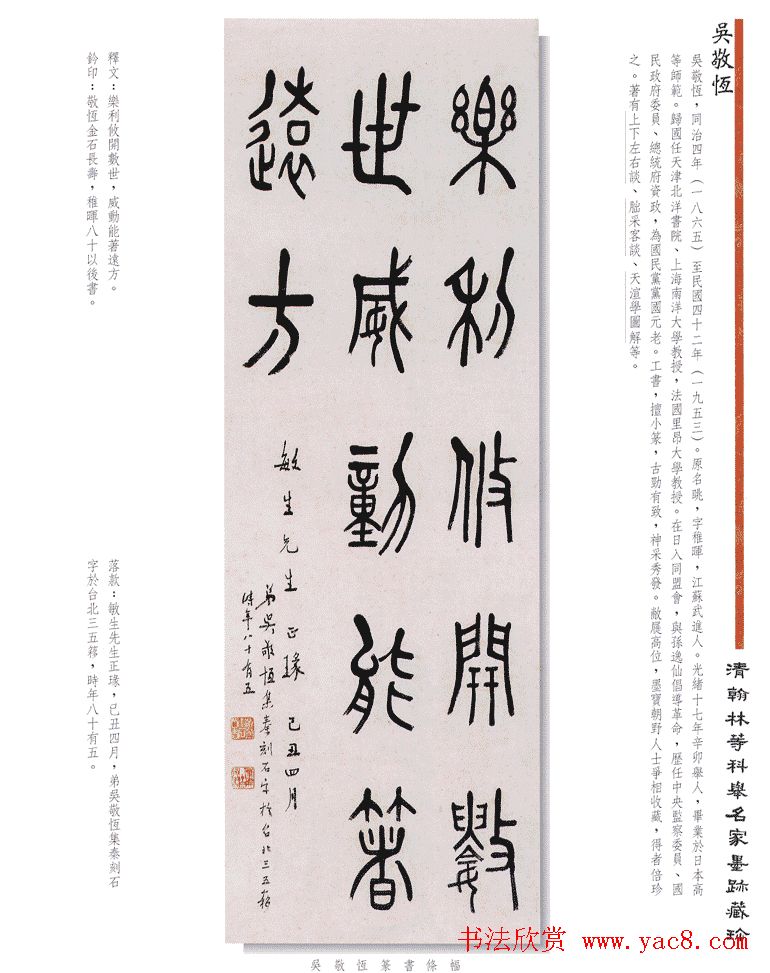 吳敬恆
吳敬恆，同治四年（一八六五）至民國四十二年（一九五三）。原名眺，字稚暉，江蘇武進人。光緒十七年辛卯舉人，畢業於日本高
等師範。歸國任天津北洋書院、上海南洋大學教授，法國里昂大學教授。在日入同盟會，與孫逸仙倡導革命，歷任中央監察委員、國
民政府委員、總統府資政，為國民黨黨國元老。工書，擅小篆，古勁有致，神采秀發。敝屣高位，墨寶朝野人士爭相收藏，得者倍珍
之。著有上下左右談、朏采客談、天渲學圖解等。
清翰林等科舉名家墨跡藏珍
樂利攸開數
世威動能著
遠方
敏生先生正瑑 己丑四月
弟吳敬恆集秦刻石字於台北三五簃
時年八十有五
釋文：樂利攸開數世，威動能著遠方。
鈐印：敬恆金石長壽，稚暉八十以後書。
落款：敏生先生正瑑，己丑四月，弟吳敬恆集秦刻石
字於台北三五簃，時年八十有五。
吳敬恆篆書條幅
书法欣赏 www.yac8.com